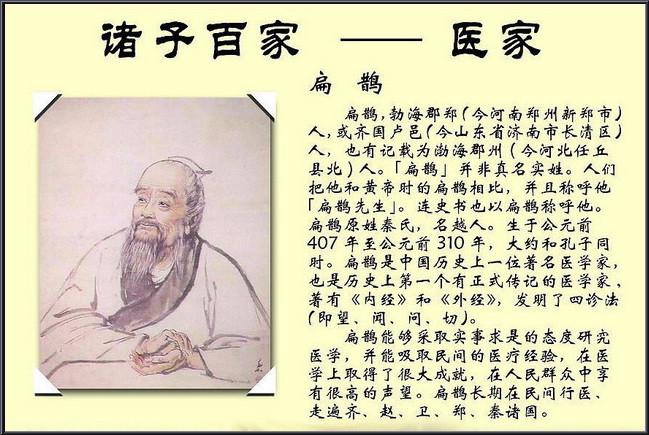 诸子百家 —— 医家
扁 鹊
扁鹊,勃海郡郑(今河南郑州新郑市)
人,或齐国卢邑(今山东省济南市长清区)
人，也有记载为渤海郡州(今河北任丘
县北)人。「扁鹊」并非真名实姓。人们
把他和黄帝时的扁鹊相比，并且称呼他
「扁鹊先生」。连史书也以扁鹊称呼他。
扁鹊原姓秦氏，名越人。生于公元前
407年至公元前310年，大约和孔子同
时。扁鹊是中国历史上一位著名医学家,
也是历史上第一个有正式传记的医学家,
著有《内经》和《外经》，发明了四诊法
(即望、闻、问、切)。
扁鹊能够采取实事求是的态度研究
医学，并能吸取民间的医疗经验，在医
学上取得了很大成就，在人民群众中享
有很高的声望。扁鹊长期在民间行医、
走遍齐、赵、卫、郑、秦诸国。